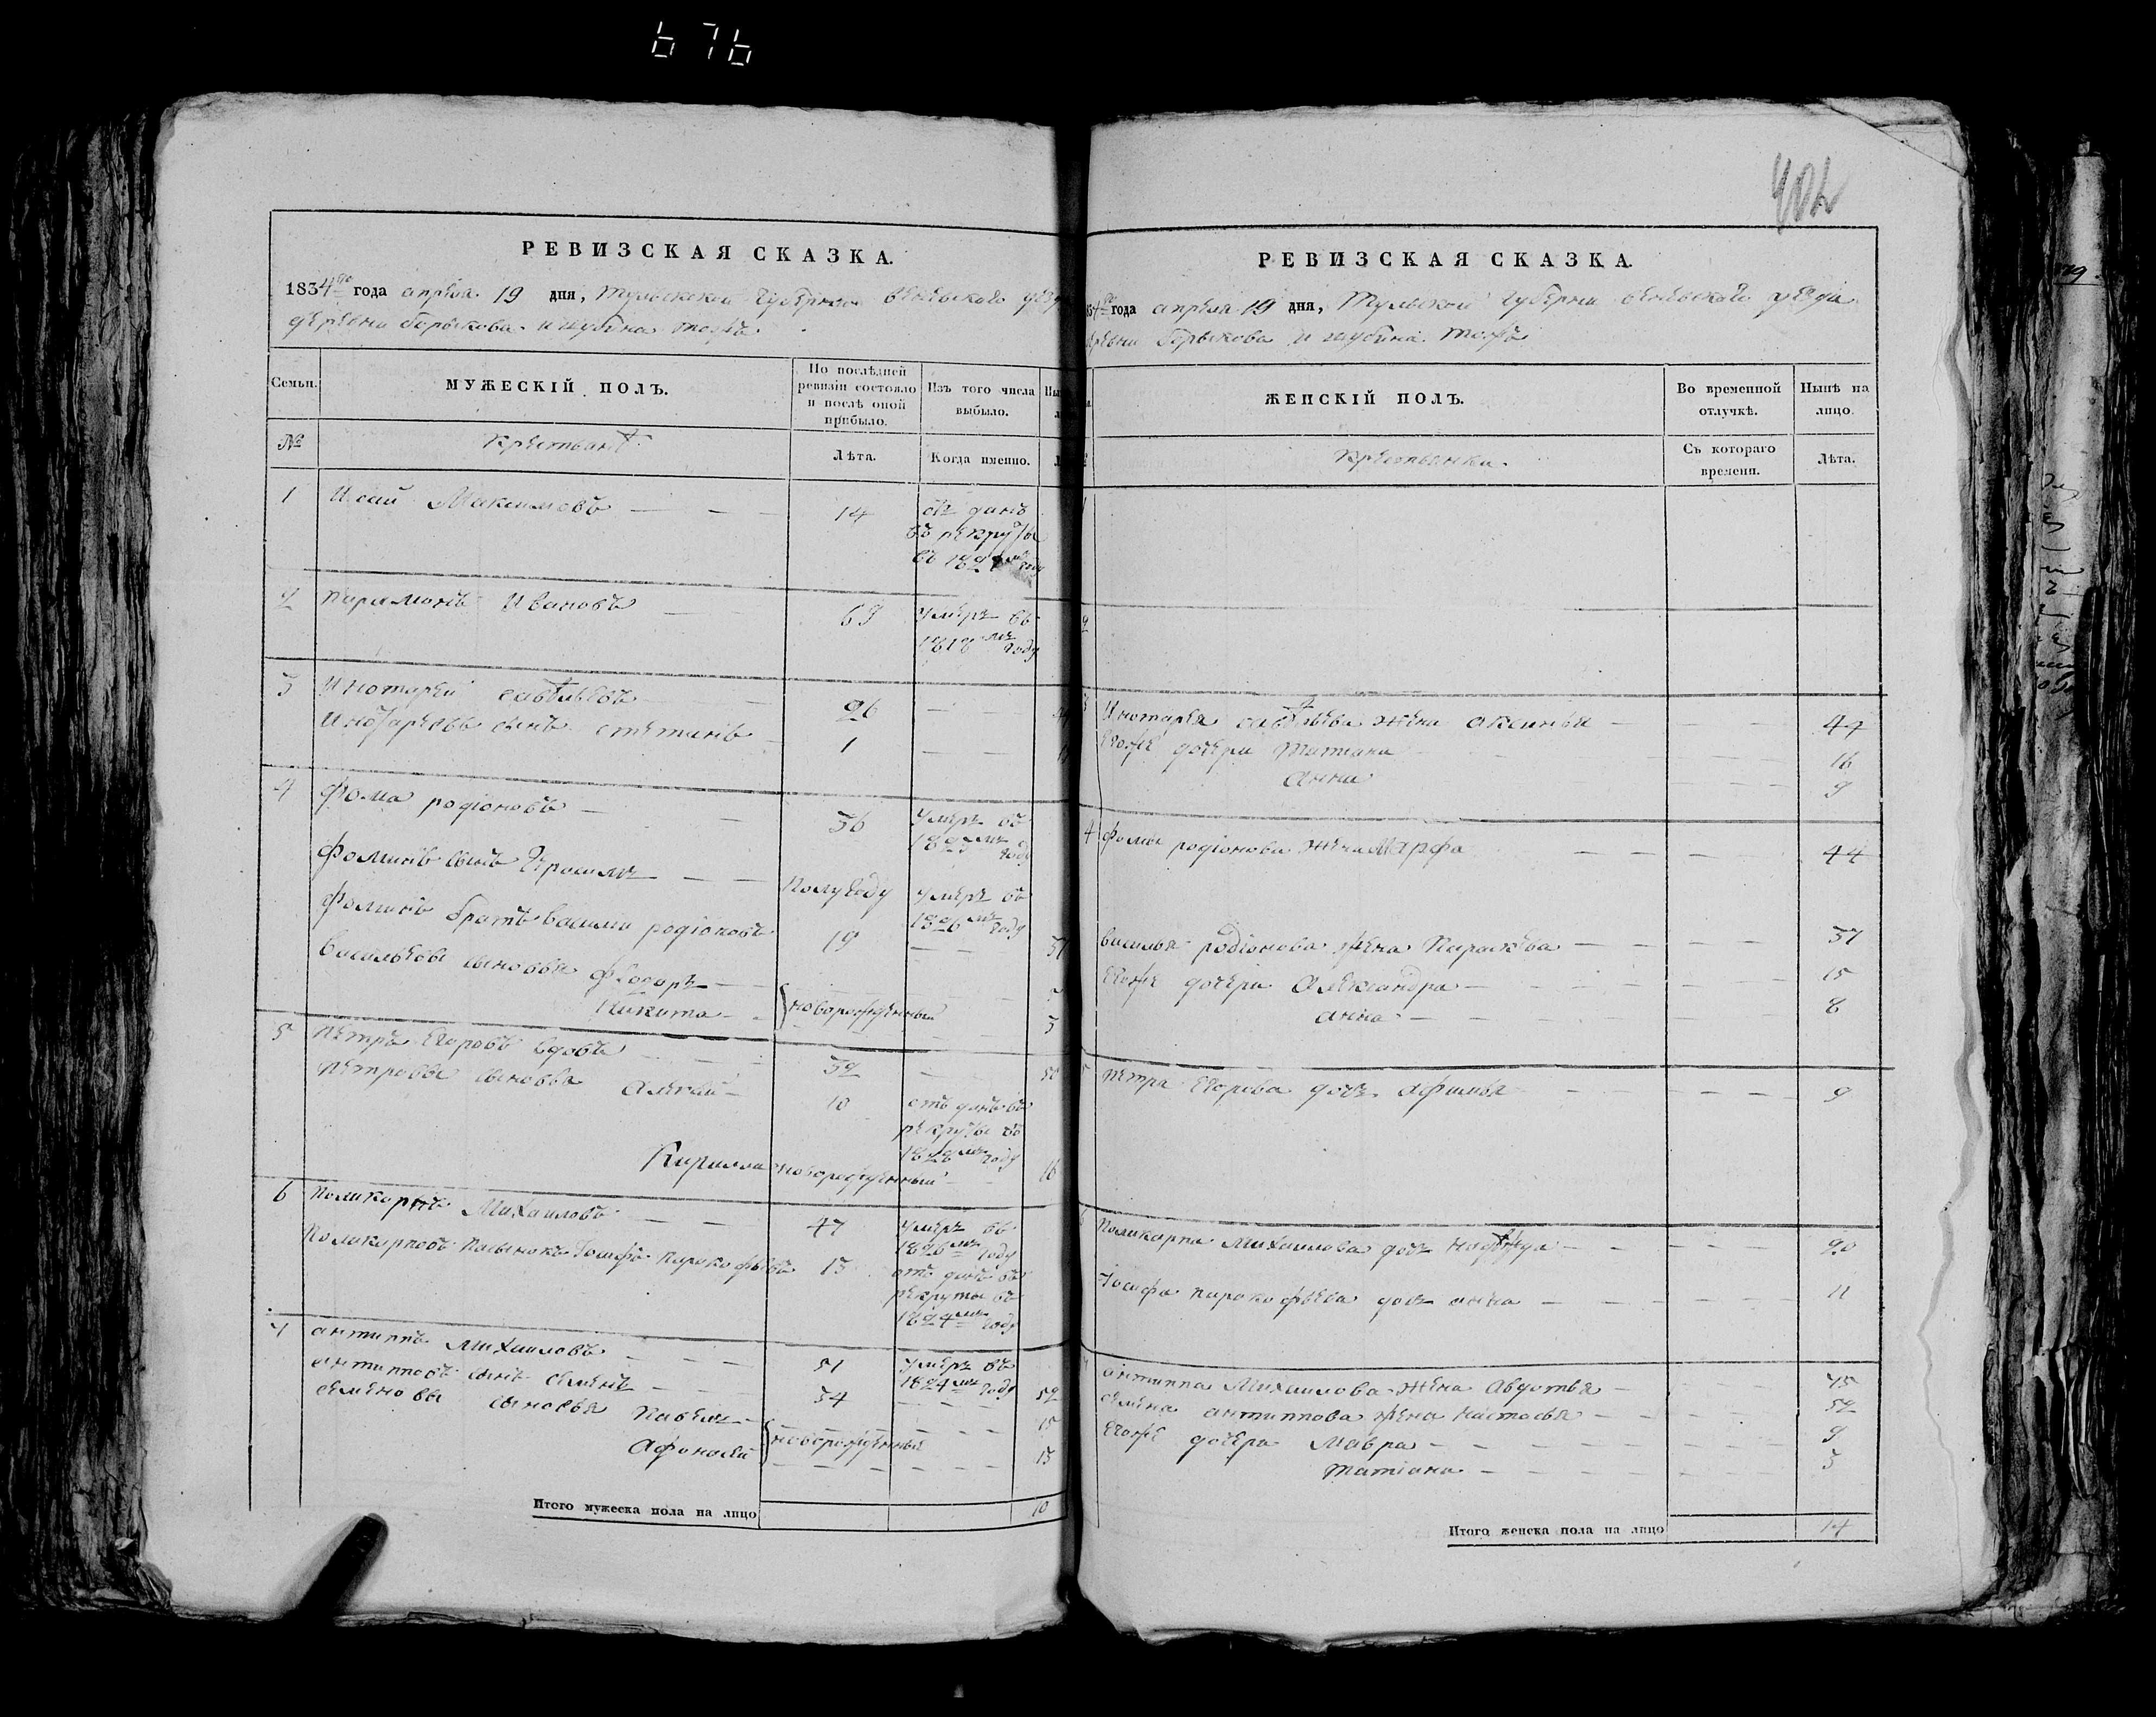 676
402
РЕВИЗСКАЯ СКАЗКА.
1834го года апреля 19 дня, Тульской Губернии веневского уезда
деревни борыкова и шубина тожъ
Семьи.
МУЖЕСКІЙ ПОЛЪ.
По послѣдней ревизіи состояло и послѣ оной прибыло.
Изъ того числа выбыло.
№
крестьянѣ
Лѣта.
Когда именно.
1 Исаий Максимовъ 14 отданъ
въ рекруты
2 парамонъ Ивановъ 69 умеръ въ
1818мъ году
3 Инотарей савѣльевъ 26
Инотарьевъ сынъ 1
4 фома родіоновъ 36 умеръ въ
году
фоминъ сынъ Герасимъ полугоду умеръ въ
1826мъ году
фоминъ братъ василий родіоновъ 19
васильевы сыновья федоръ 7
никита новорожденный 5
5 петръ Егоровъ вдовъ 32 50
петровы сыновья алексей 10 отъданъ въ
рекруты въ
1828мъ году
Кирилла новорожденный 16
6 поликарпъ Михаиловъ 47 умеръ въ
1826мъ году
поликарповъ пасынокъ Іосифъ парокофьевъ 13 отъданъ въ
рекруты въ
1824мъ году
7 антиппъ михаиловъ 51 умеръ въ
1824мъ году
антипповъ сынъ семенъ 34 52
семеновы сыновья павелъ 15
афонасей новорожденныя 13
Итого мужеска пола на лицо 10
РЕВИЗСКАЯ СКАЗКА.
года апреля 19 дня, Тульской Губерни веневского уезда
борыкова и шубина тожъ
ЖЕНСКІЙ ПОЛЪ.
Во временной отлучкѣ.
Нынѣ на лицо.
крестьянки.
Съ котораго времени.
Лѣта.
2
3 Инотарея савѣльева жена аксинья 44
Егоже дочери татиана 16
анна 9
4 фомы родіонова жена Марфа 44
василья родіонова жена параскева 37
Егоже дочери александра 15
анна 8
5 петра Егорова дочь афимья 9
6 поликарпа михаилова дочь надежда 20
Іосифа парокофьева дочь анна 11
7 антиппа Михаилова жена авдотья 75
семена антиппова жена настасья 52
Егоже дочери мавра 9
татіана 3
Итого женска пола на лицо 14